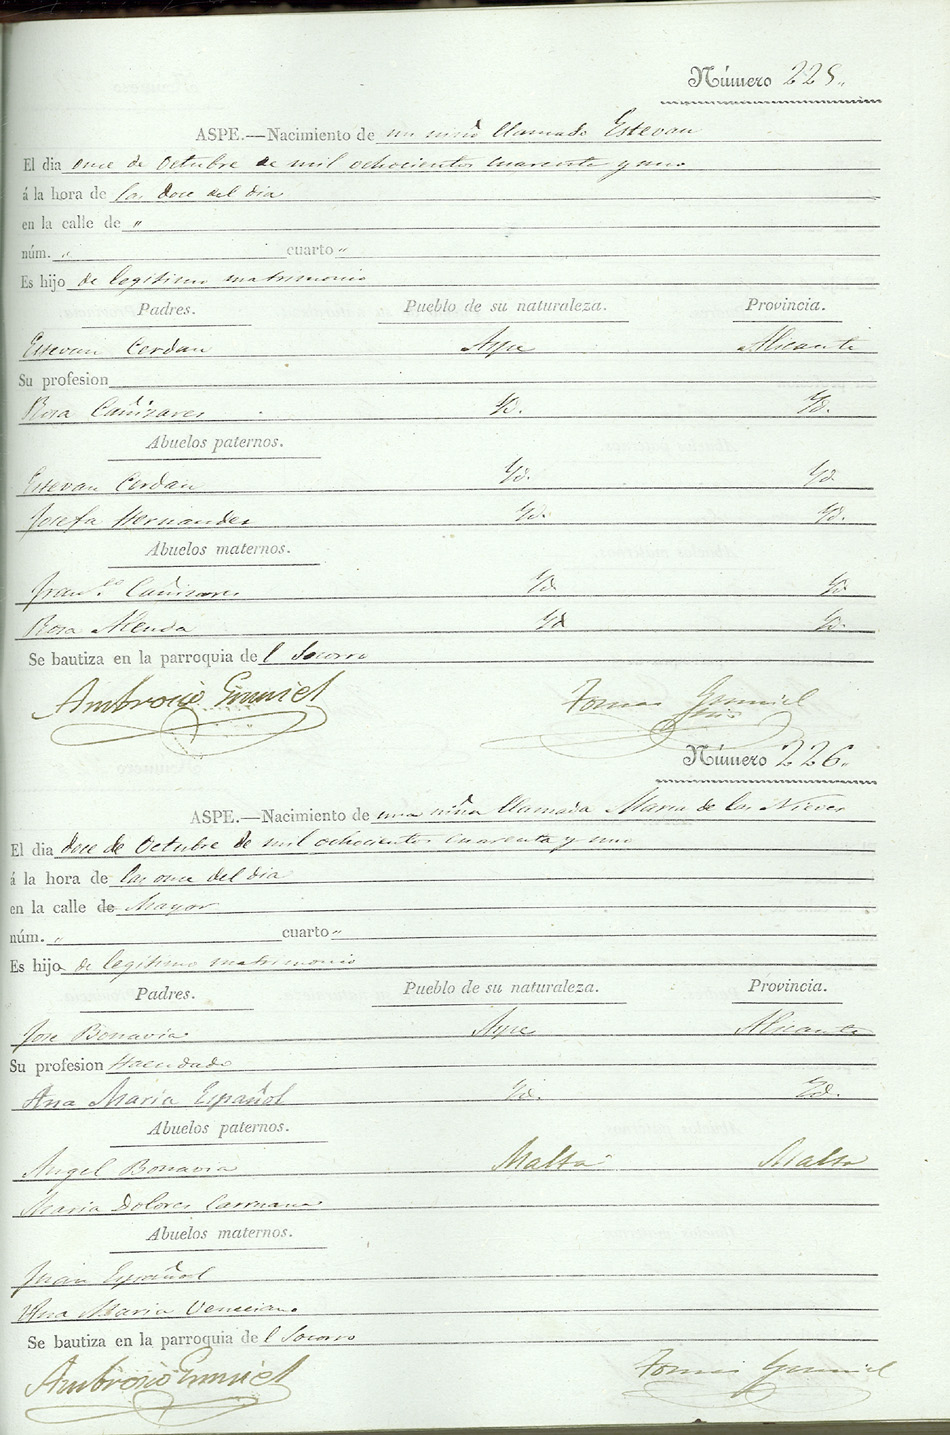 Número 225.
ASPE.—Nacimiento de un niño llamado Estevan
El dia once de Octubre de mil ochocientos cuarenta y uno
á la hora de las doce del dia
en la calle de "
núm. " cuarto "
Es hijo de legitimo matrimonio
Padres. Pueblo de su naturaleza. Provincia.
Estevan Cerdan Aspe Alicante
Su profesion
Rosa Cañizares Yd. Yd.
Abuelos paternos.
Estevan Cerdan Yd. Yd.
Josefa Hernandez Yd. Yd.
Abuelos maternos.
Fran.co Cañizares Yd Yd
Rosa Alenda Yd Yd.
Se bautiza en la parroquia del Socorro
Ambrocio Gumiel Tomas Gumiel
Número 226.
ASPE.—Nacimiento de una niña llamada Maria de las Nieves
El dia doce de Octubre de mil ochocientos cuarenta y uno
á la hora de las once del dia
en la calle de Mayor
núm. " cuarto "
Es hija de legitimo matrimonio
Padres. Pueblo de su naturaleza. Provincia.
Jose Bonavia Aspe Alicante
Su profesion Hacendado
Ana Maria Español Yd. Yd.
Abuelos paternos.
Angel Bonavia Malta Malta
Maria Dolores Carmana
Abuelos maternos.
Juan Español
Ana Maria Veneciano
Se bautiza en la parroquia del Socorro
Ambrosio Gumiel Tomas Gumiel